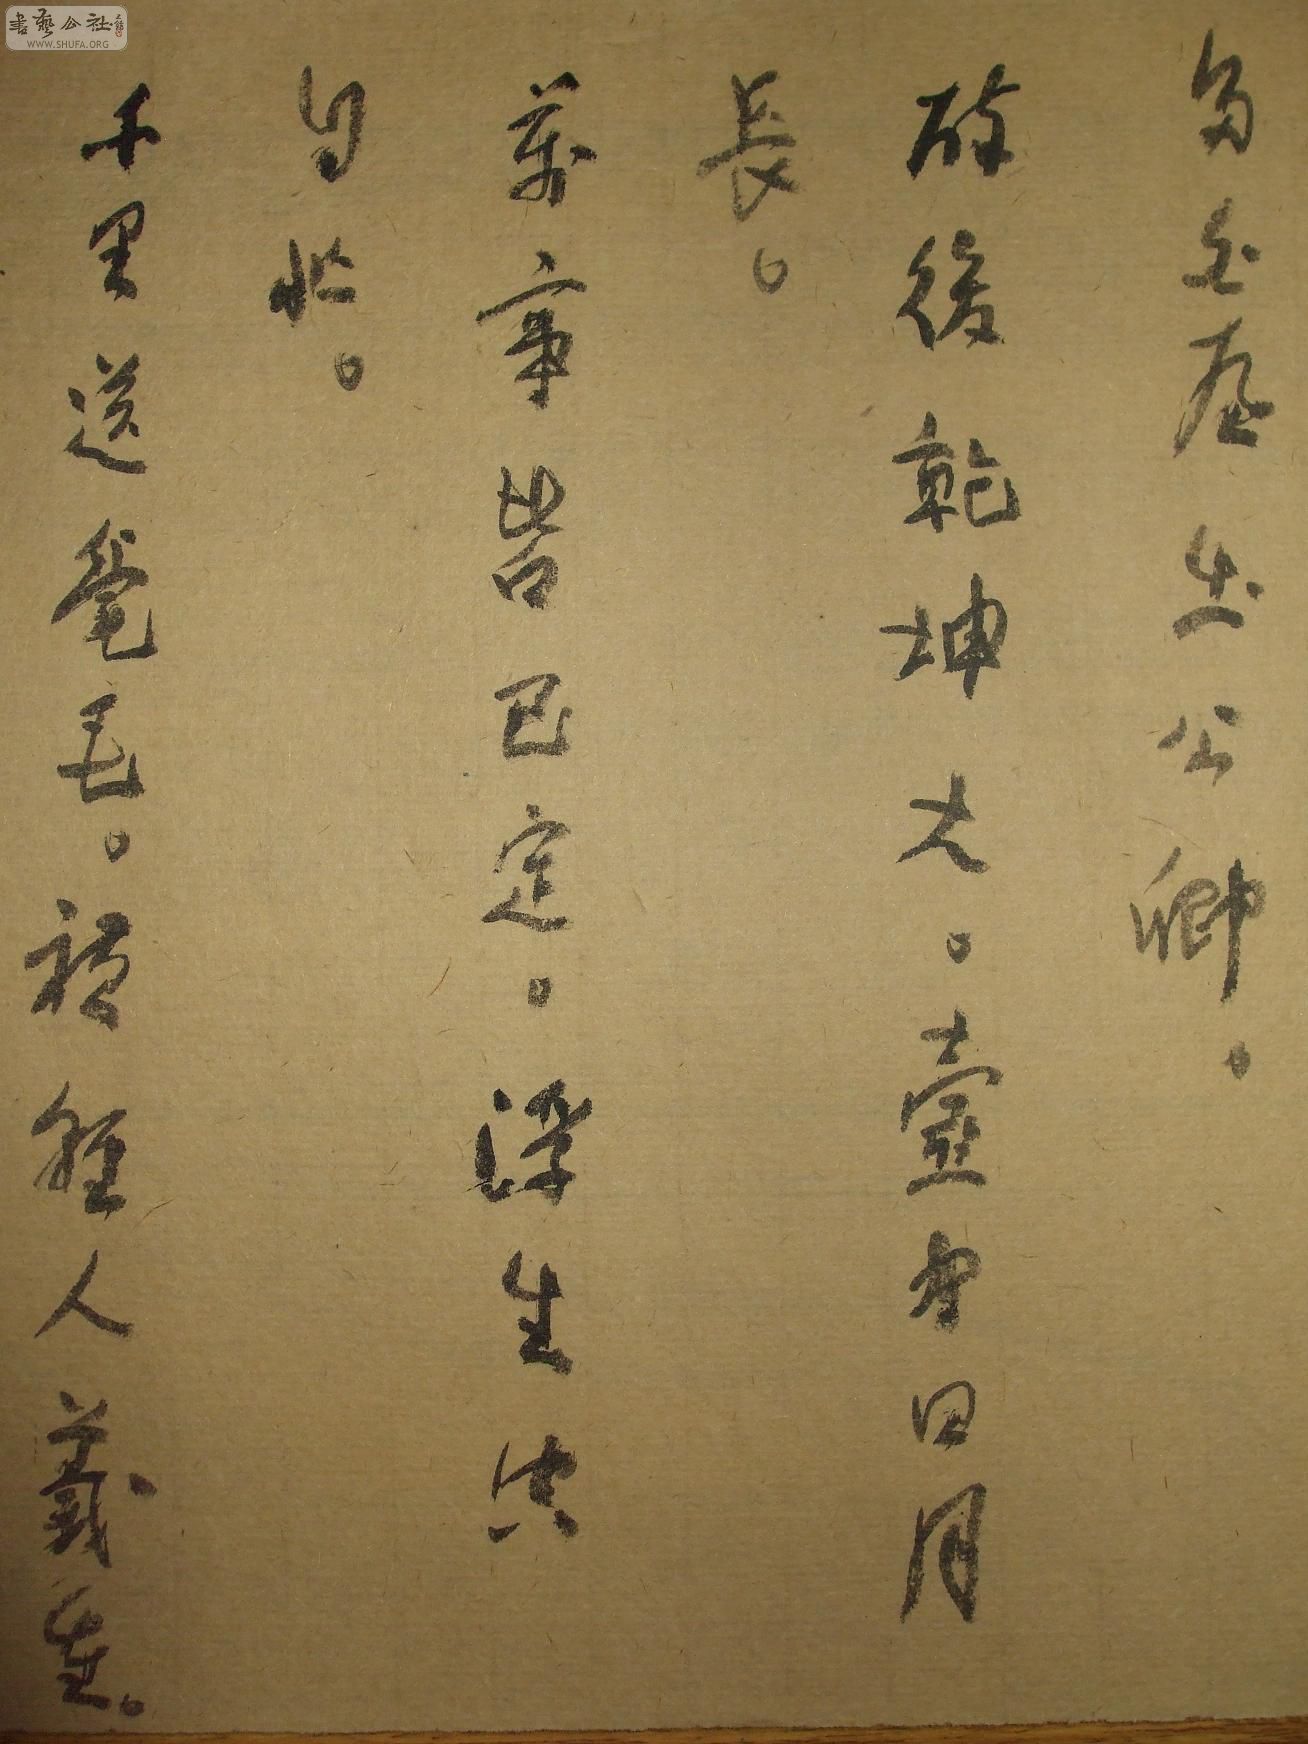 多白屋出公卿。
醉後乾坤大。壺中日月
長。
萬事皆已定。浮生空
自忙。
千里送毫毛。禮輕人義重。
書藝公社
WWW.SHUFA.ORG